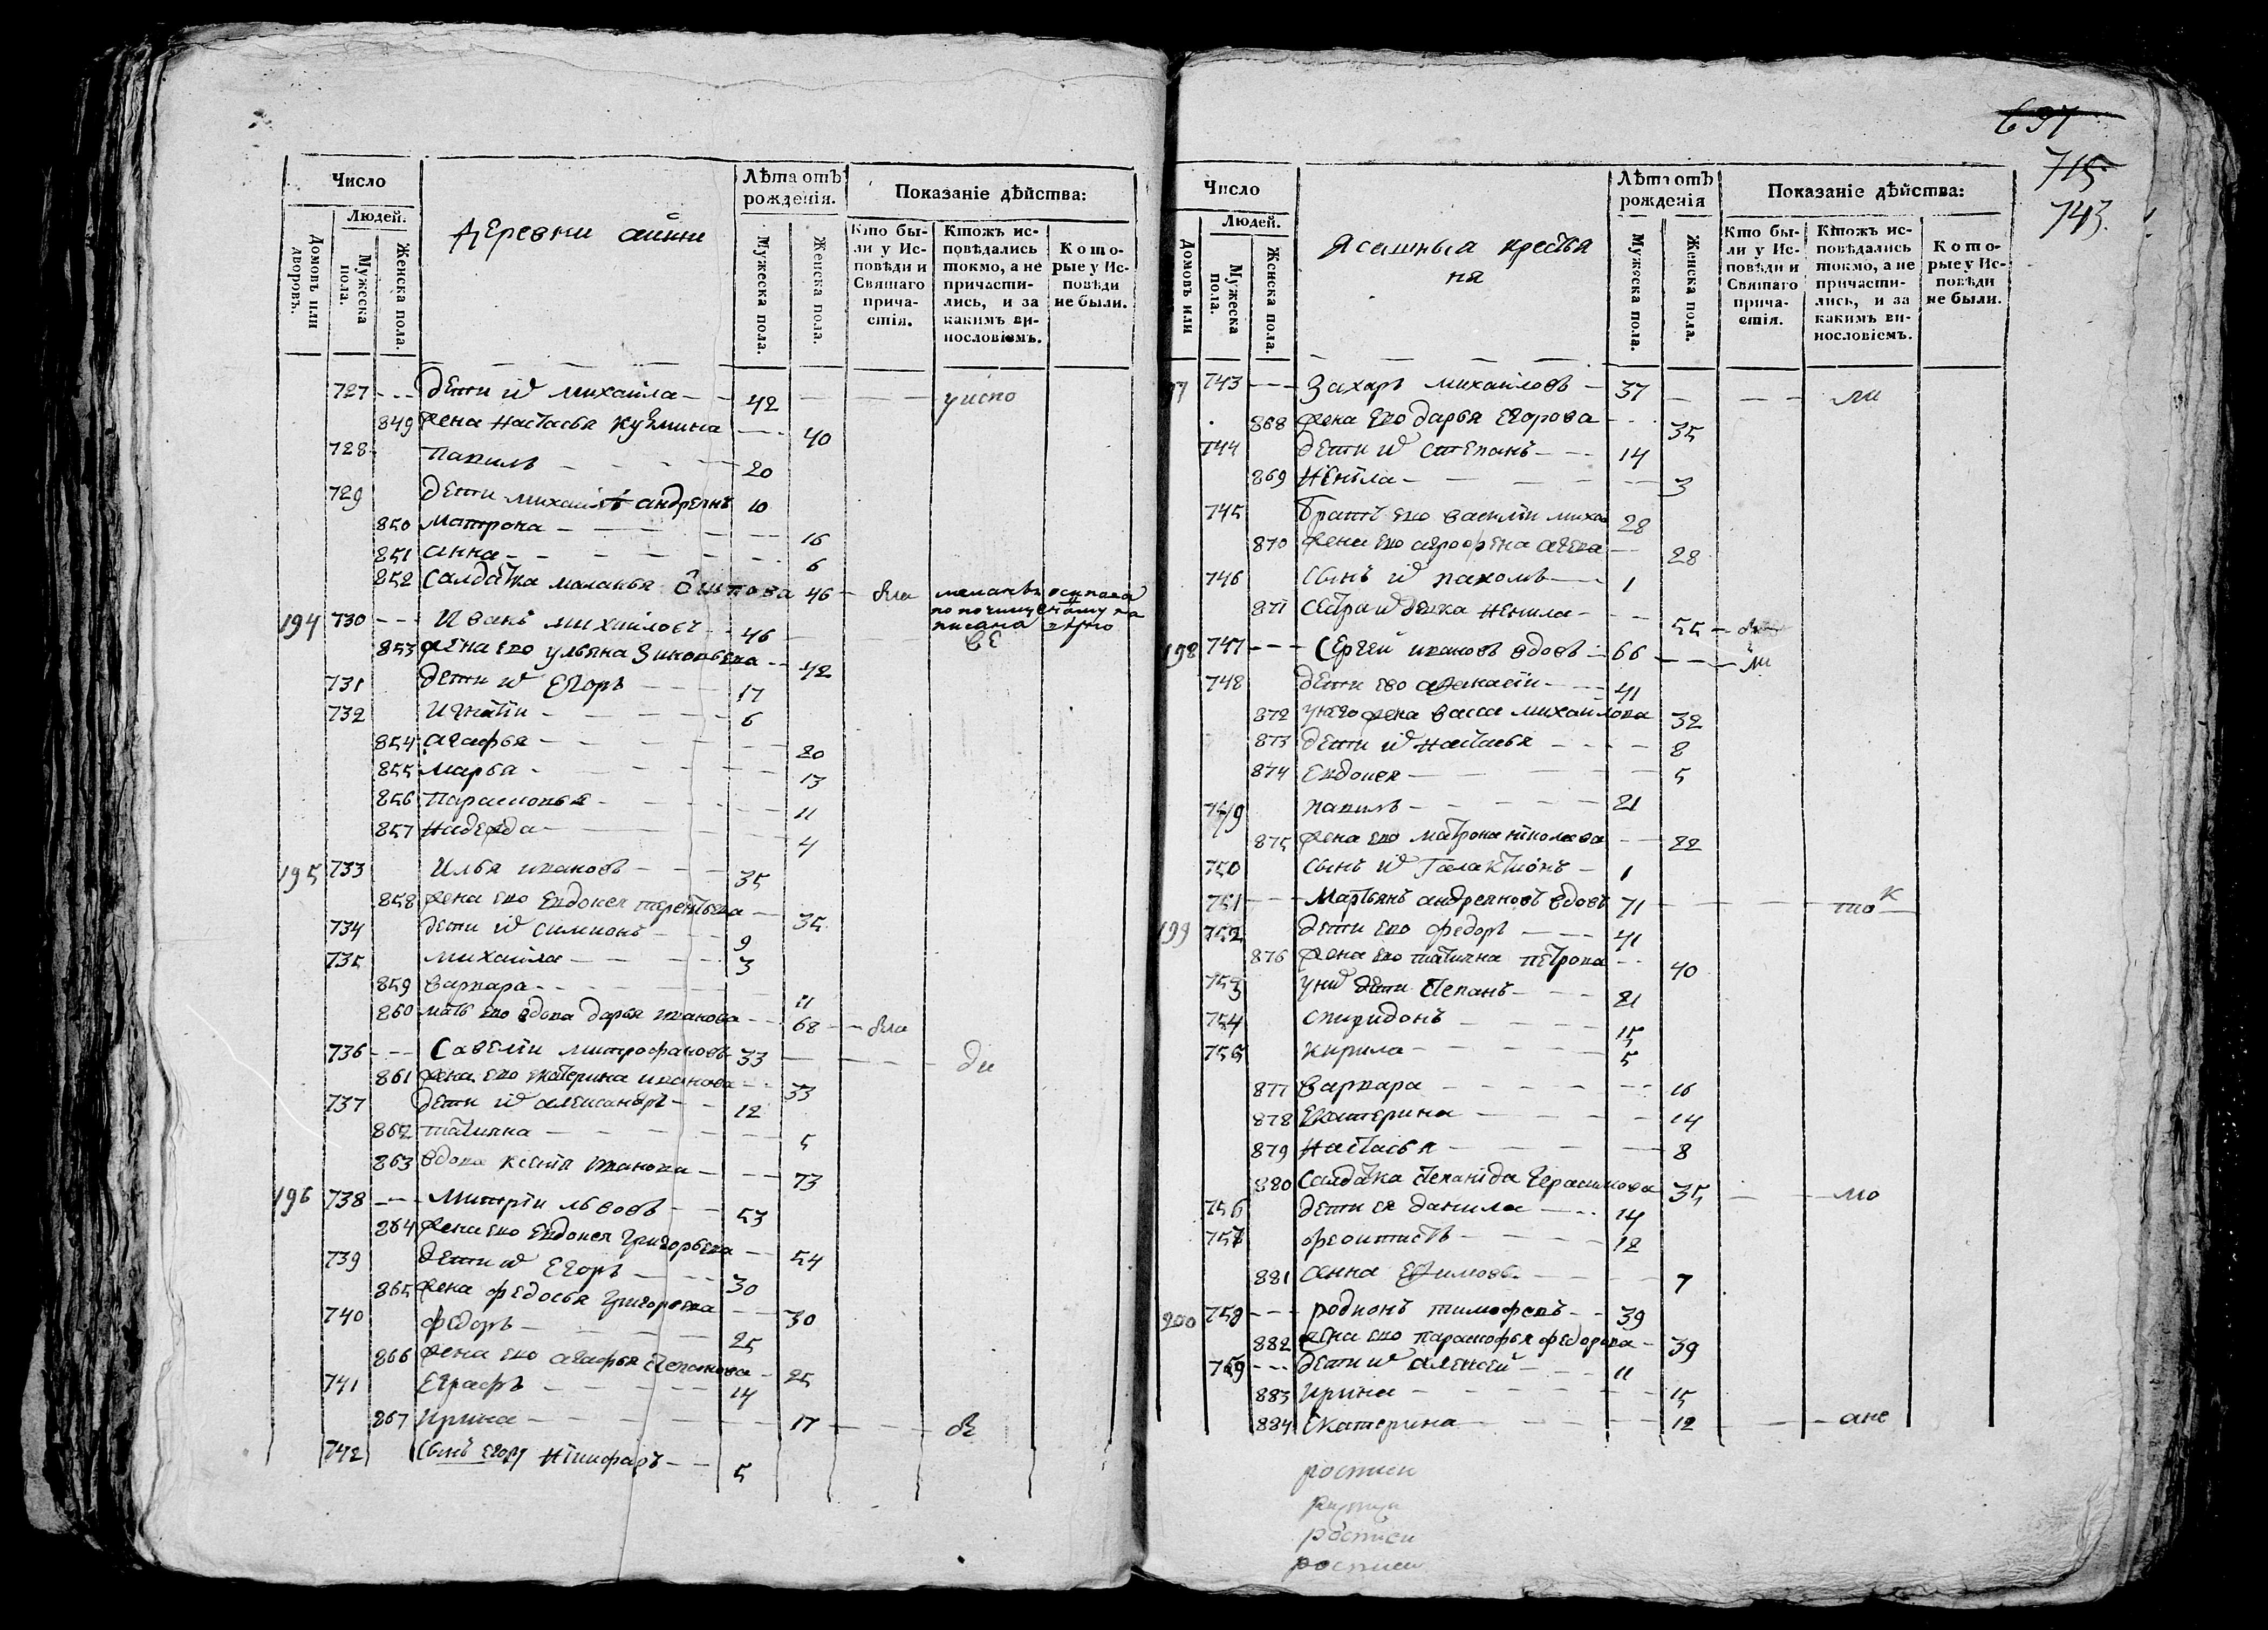 Число
Людей.
Домовъ или дворовъ.
Мужеска пола.
Женска пола.
Деревни
Лѣта отъ рожденія.
Мужеска пола.
Женска пола.
Показаніе дѣйства:
Кто бы-
ли у Ис-
повѣди и
Святаго
прича-
стія.
Ктожъ ис-
повѣдались
токмо, а не
причасти-
лись, и за
какимъ ви-
нословіемъ.
Кото-
рые у Ис-
повѣди
не были.
727 дети иѡ михаила 42 уиспо
849 жена настасья кузмина 40
728 павилъ 20
729 дети михаила андреянъ 10
850 матрона 16
851 анна 6
852 салдатка маланья осипова 46
194 730 Иванъ михаиловъ 46
853 жена ево ульяна зиновьева 42
731 дети иѡ Егоръ 17
732 игнатiи 6
854 агафья 20
855 марѳа 13
856 парасковья 11
857 надежда 4
195 733 Илья ивановъ 35
858 жена ево евдокея терентьева 35
734 дети иѡ симионъ 9
735 михаила 3
859 варвара 11
860 мать ево вдова дарья иванова 68
736 Савелiи митрофановъ 33 ди
861 жена ево екатерина иванова 33
737 дети иѡ александръ 12
862 татияна 5
863 вдова ксенiя иванова 73
196 738 Митрiи львовъ 53
864 жена ево евдокея григорьева 54
739 дети иѡ егоръ 30
865 жена федосья григорьева 30
740 федоръ 25
866 жена ево агафья степанова 25
741 Евграфъ 14
867 ирина 17
742 сынъ егору никифоръ 5
697
715
743
Число
Людей.
Домовъ или
Мужеска пола.
Женска пола.
Ясашныя крестья
ня
Лѣта отъ рожденія
Мужеска пола.
Женска пола.
Показаніе дѣйства:
Кто бы-
ли у Ис-
повѣди и
Святаго
прича-
стія.
Ктожъ ис-
повѣдались
токмо, а не
причасти-
лись, и за
какимъ ви-
нословіемъ.
Кото-
рые у Ис-
повѣди
не были.
743 Захаръ михаиловъ 37 ли
868 жена ево дарья егорова 35
744 дети иѡ степанъ 14
869 ненила 3
745 братъ ево василiи миха 28
870 жена ево агрофена 28
746 сынъ иѡ пахомъ 1
871 сестра иѡ девка ненила 55
198 747 Сергей ивановъ вдовъ 66 ли
748 дети ево афанасiи 41
872 унего жена васса михаилова 32
873 дети иѡ настасья 8
874 евдокея 5
749 павилъ 21
875 жена ево матрона николаева 22
750 сынъ иѡ галактионъ 1
751 мартьянъ андреяновъ вдовъ 71 ток
199 752 дети ево федоръ 41
876 жена ево татияна петрова 40
753 униѡ дети степанъ 21
754 спиридонъ 15
755 кирила 5
877 варвара 16
878 екатерина 14
879 настасья 8
880 салдатка степанiда герасимова 35 мо
756 дети ея данила 14
757 феоктистъ 12
881 анна 7
200 758 родионъ тимофеевъ 39
882 жена ево парасковья федорова 39
759 дети иѡ алексей 11
883 ирина 15
884 екатерина 12 ане
росписи
росписи
росписи